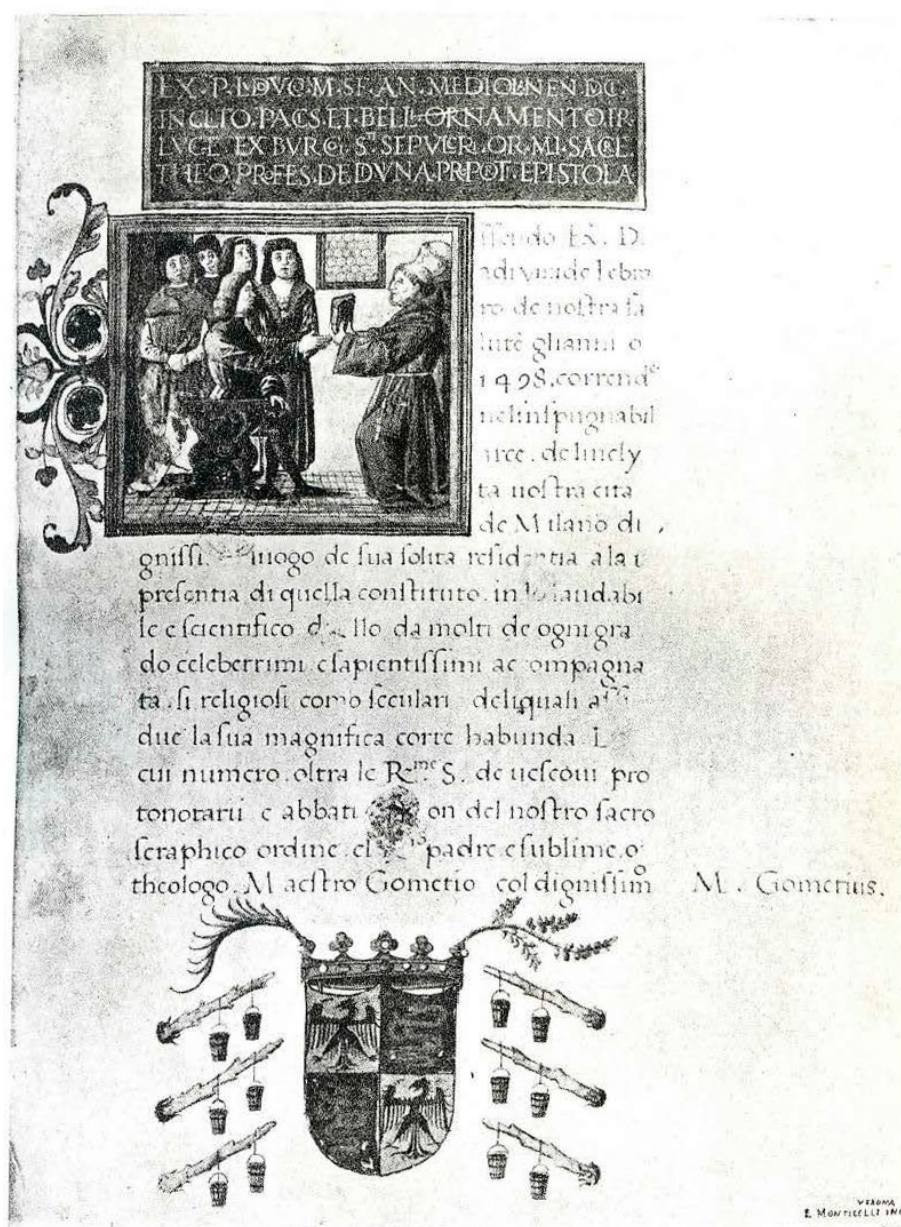 EX. P. LVDVCO. M. SF. AN. MEDIOLNEN. DC.
INCLITO. PACIS. ET. BELLI. ORNAMENTO. FR.
LVCE. EX BVRGI. Sti SEPVLCRI. OR. MI. SACRE.
THEO. PRFES. DE DVNA. PRPOT. EPISTOLA
ssendo Ex. D.
adi viiii de febra
ro de nostra sa
lute glianni o
1498. correndo
nelinspugnabil
arce. delinely
ta nostra cita
de Milano di
gnissi. luogo de sua solita residentia a la
presentia di quella constituto. in lo laudabi
le e scientifico duello da molti de ogni gra
do celeberrimi e sapientissimi acompagna
ta. si religiosi como seculari deliquali assi
due la sua magnifica corte habunda.
cui numero. oltra le Rme S. de uescoui pro
tonotarii e abbati on del nostro sacro
seraphico ordine. el padre e sublime.
theologo. Maestro Gometio col dignissimo
M. Gometius.
VERONA
E MONTICELLI INC